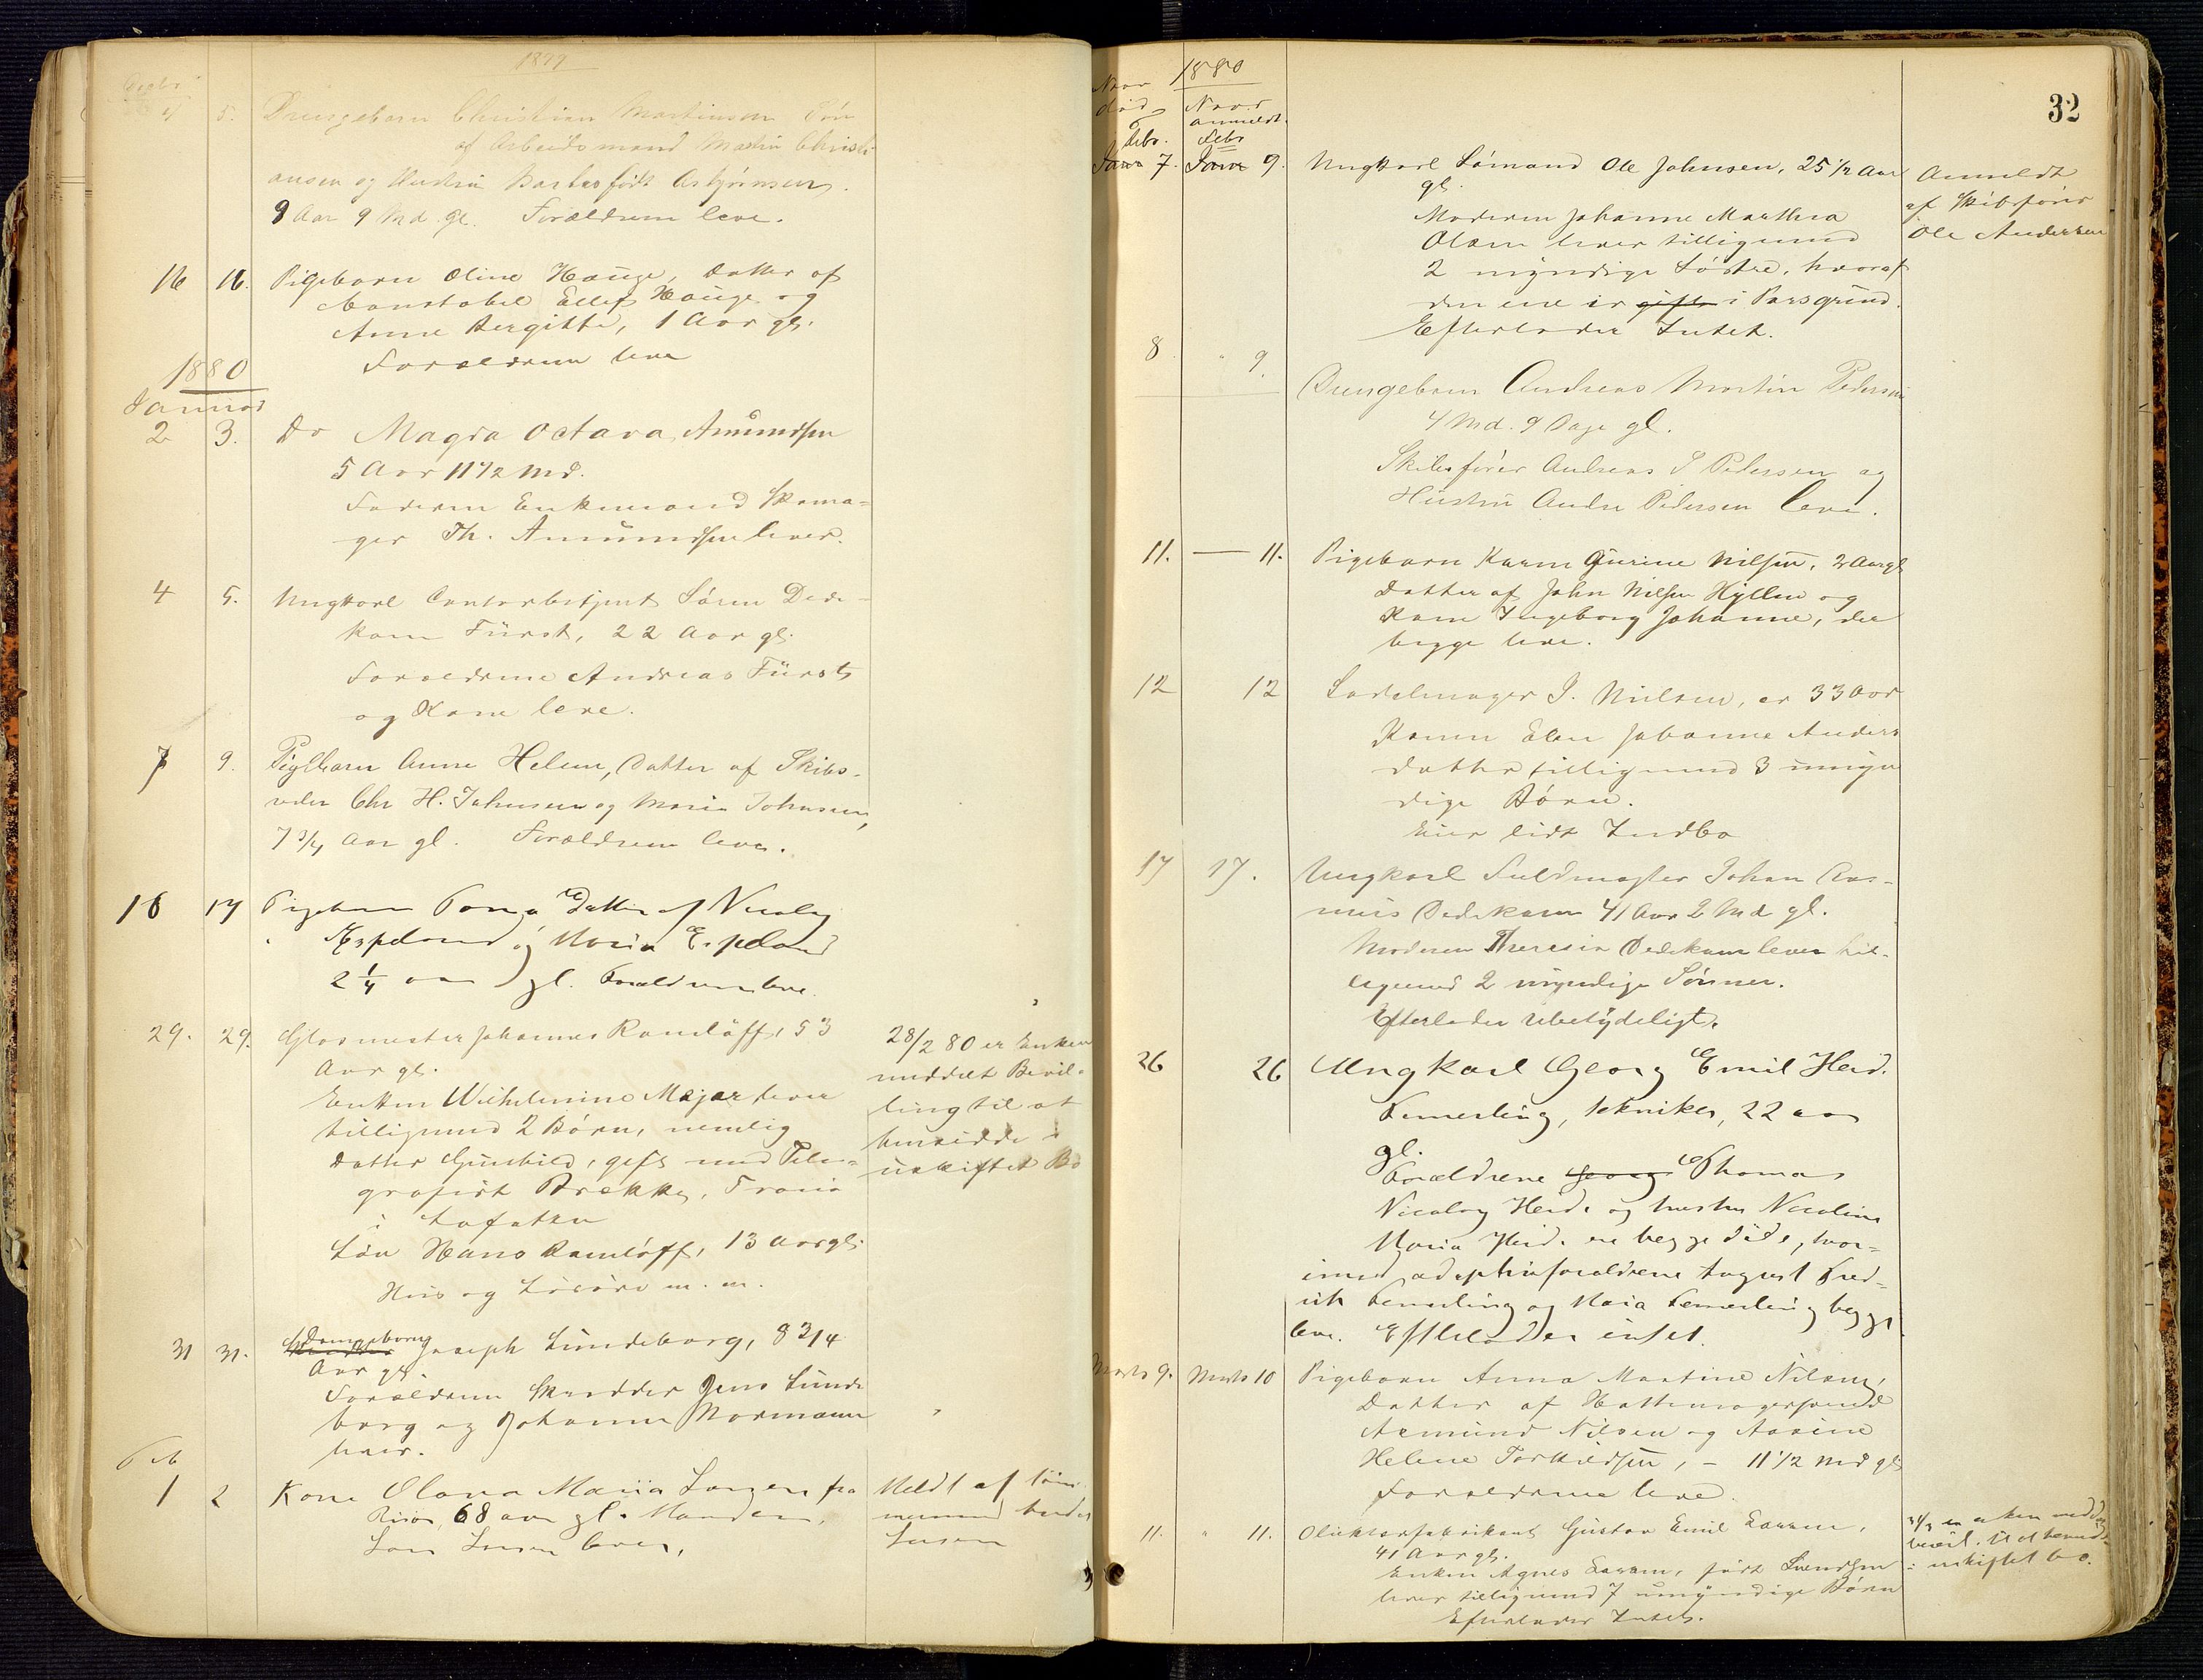 1879
4 5. Drengebarn Christian Martinsen Søn
af Arbeidsmand Martin Christi-
ansen og Hustru født Asbjørnsen.
9 Aar 9 Md. gl. Forældrene leve.
16 16. Pigebarn Oline Hauge, Datter af
Constabel Ellef Hauge og
Anne Bergitte, 1 Aar gl.
Forældrene leve
1880
Januar
2 3. Do Magda Octava Amundsen
5 Aar 11 1/2 Md.
Faderen Enkemand Skoma-
ger Th. Amundsen lever.
4 5. Ungkarl Contorbetjent Søren Dede-
kam Fürst, 22 Aar gl.
Forældrene Andreas Fürst
og Kone leve.
7 9. Pigebarn Anne Helene, Datter af Skibs-
reder Chr H. Johnsen og Maria Johnsen,
7 3/4 Aar gl. Forældrene leve.
16 17 Pigebarn Datter af Nicolay
Espeland og Maria Espeland
2 1/4 aar gl. Forældrene leve.
29. 29. Glasmester Johannes Ramløff, 53
Aar gl.
Enken Wilhelmine Majer lever
tilligemed 2 Børn, nemlig
Datter Gunhild, gift med Tele-
grafist Brekke,
i Lofoten
Søn Hans Ramløff, 13 Aar gl.
Hus og Løsøre m. m.
28/2 80 er Enken
meddelt Bevil-
ling til at
hensidde i
uskiftet Bo
31 31. Drengebarn Joseph Lundeborg, 8 3/4
Aar gl.
Forældrene Skrædder Jens Lunde
borg og Johanne Mormann
lever.
Feb
1 2 Kone Olava Maria Larsen fra
Risør, 68 aar gl. Manden,
Lars Larsen lever,
Meldt af
Larsen
32
1880
Naar
død
Naar
anmeldt.
Febr. Febr
Janr 7. Janr 9. Ungkarl Sømand Ole Johnsen, 25 1/2 Aar
gl.
Moderen Johanne Marthea
Olsen lever tilligemed
2 myndige Søstre, hvoraf
den ene er gift i Porsgrund.
Efterlader Intet.
Anmeldt
af Skibsfører
Ole Andersen
8 " 9. Drengebarn Andreas Martin Pedersen
4 Md. 9 Dage gl.
Skibsfører Andreas P Pedersen og
Hustru Andrea Pedersen leve.
11. — 11. Pigebarn Karen Gurine Nilsen, 2 Aar gl
Datter af John Nilsen Hyllen og
Kone Ingeborg Johanne, der
begge leve.
12 12 Sadelmager J. Nielsen, er 33 Aar
Konen Elen Johanne Anders
datter tilligemed 3 umyn
dige Børn.
Eier lidt Indbo
17 17. Ungkarl Fuldmægtig Johan Ras-
mus Dedekam 41 Aar 2 Md gl.
Moderen Theresia Dedekam lever til-
ligemed 2 myndige Sønner.
Efterlader Ubetydeligt.
26 26 Ungkarl Georg Emil Heid.
Femerling, tekniker, 22 aar
gl.
Forældrene Georg Thomas
Nicolay Heid. og hustru Nicoline
Maria Heid. ere begge døde, hvor-
imod adoptivforældrene August Fred-
rik Femerling og Maria Femerling begge
leve. Efterlader intet.
Marts 9. Marts 10 Pigebarn Anna Martine Nilsen,
Datter af Hattemagersvend
Asmund Nilsen og Aasine
Helene Torkildsen, - 11 1/2 Md gl
Forældrene leve.
11. " 11. Gustav Emil Larsen,
41 Aar gl.
Enken Agnes Larsen, født Svendsen
lever tilligemed 7 umyndige Børn
Efterlader Intet.
er enken medd.
bevil. til at hensidde
i uskiftet bo.